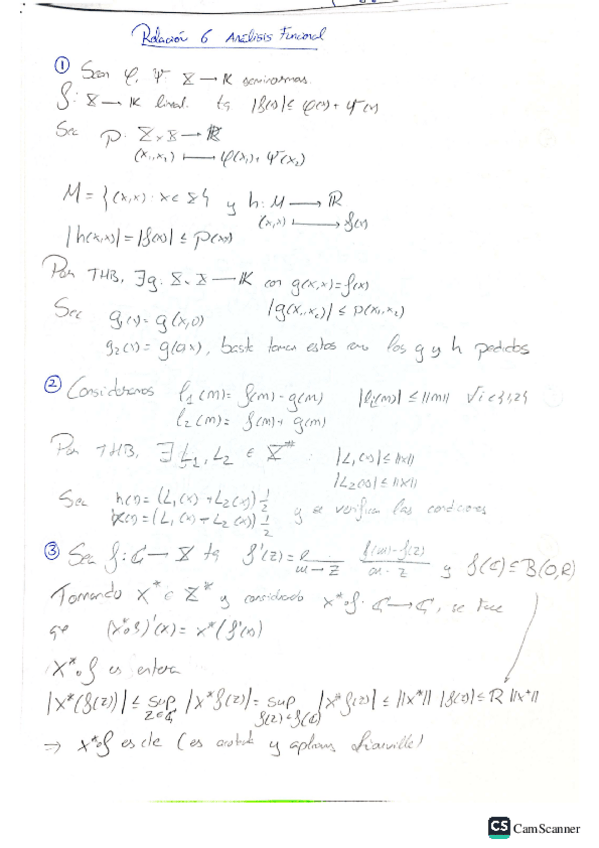 Relación 6 Análisis Funcional
① Sean φ, Ψ X → K seminormas.
f: X → K lineal. tq |f(x)| ≤ φ(x) + Ψ(x)
Sea p: X × X → R
(x₁, x₂) ↦ φ(x₁) + Ψ(x₂)
M = {(x,x) : x ∈ X} y h: M → R
(x,x) ↦ f(x)
|h(x,x)| = |f(x)| ≤ p(x,x)
Por THB, ∃g: X × X → K con g(x,x) = f(x)
|g(x₁,x₂)| ≤ p(x₁,x₂)
Sea g₁(x) = g(x,0)
g₂(x) = g(0,x), basta tomar estos como los g y h pedidos
② Consideramos l₁(m) = f(m) - g(m) |lᵢ(m)| ≤ ||m|| ∀i∈{1,2}
l₂(m) = f(m) + g(m)
Por THB, ∃ L₁, L₂ ∈ X* : |L₁(x)| ≤ ||x||
|L₂(x)| ≤ ||x||
Sea h(x) = (L₁(x) + L₂(x)) 1/2
(x) = (L₁(x) - L₂(x)) 1/2 y se verifican las condiciones
③ Sea f: C → X tq f'(z) = lim m→z f(m)-f(z) / m-z y f(C) ⊆ B(0,R)
Tomando x* ∈ X* y considerando x*∘f: C → C, se tiene
que (x*∘f)'(x) = x*(f'(x))
x*∘f es entera
|x*(f(z))| ≤ sup z∈C |x*f(z)| = sup f(z)∈f(C) |x*f(z)| ≤ ||x*|| |f(z)| ≤ R ||x*||
⇒ x*∘f es cte (es acotada y aplicamos Liouville)
CS CamScanner